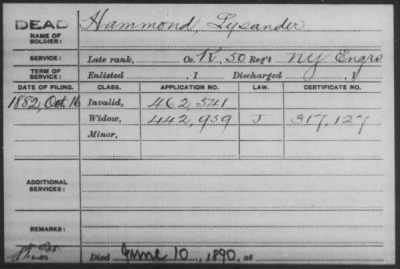 DEAD
NAME OF SOLDIER: Hammond, Lysander
SERVICE: Late rank, Co. K, 50 Reg't NY Engrs.
TERM OF SERVICE: Enlisted , 1 Discharged , 1
DATE OF FILING. CLASS. APPLICATION NO. LAW. CERTIFICATE NO.
1882, Oct. 16 Invalid, 462,541
Widow, 442,959 J 317,127
Minor,
ADDITIONAL SERVICES:
REMARKS:
Died June 10, 1890, at